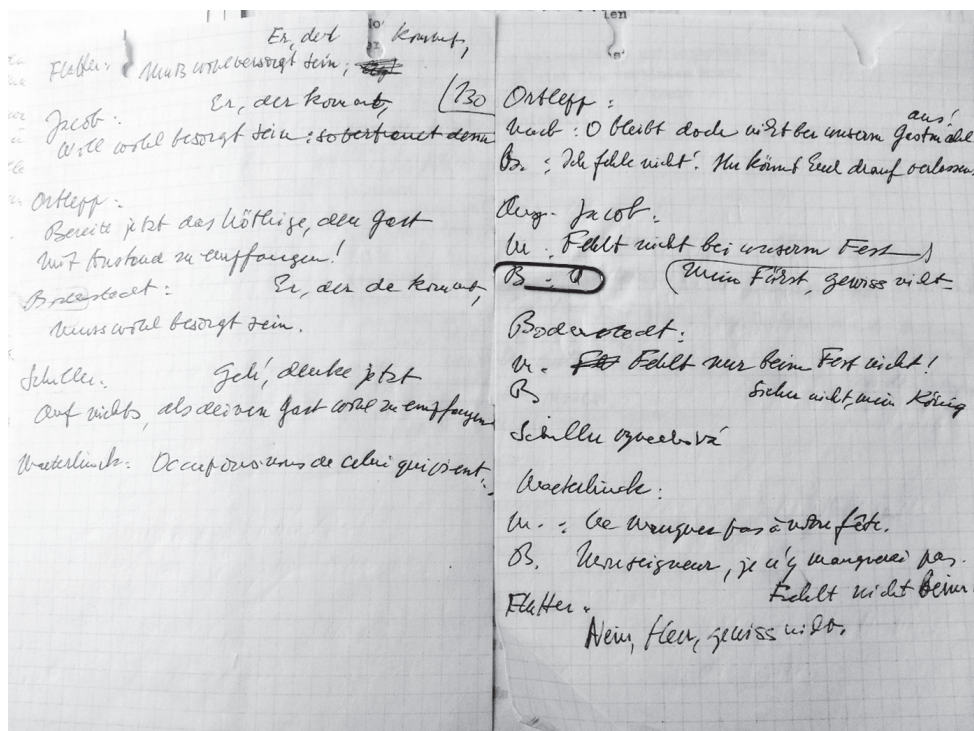 Er, der kommt,
Flatter: Muß wohl besorgt sein;
Jacob: Er, der kommt,
Will wohl besorgt sein: so betrauet denn
Ortlepp:
Bereite jetzt das Nöthige, den Gast
mit Anstand zu empfangen!
Bodenstedt: Er, der da kommt,
muss wohl besorgt sein.
Schiller: Geh', denke jetzt
Auf nichts, als deinen Gast wohl zu empfangen
Maeterlinck: Occupons nous de celui qui vient.
130
len
Ortlepp:
Macb: O bleibt doch nicht bei unserm Gastmahl aus!
B.: Ich fehle nicht! Ihr könnt Euch drauf verlassen.
Jacob:
M: Fehlt nicht bei unserm Fest
B: (Mein Fürst, gewiss nicht
Bodenstedt:
M. Fehlt nur beim Fest nicht!
B Sicher nicht, mein König
Schiller vynechává
Maeterlinck:
M.: Ne manquez pas à notre fête.
B. Monseigneur, je n'y manquerai pas.
Fehlt nicht beim
Flatter:
Nein, Herr, gewiss nicht.